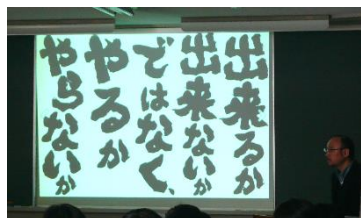 出来るか
出来ないか
ではなく、
やるか
やらないか